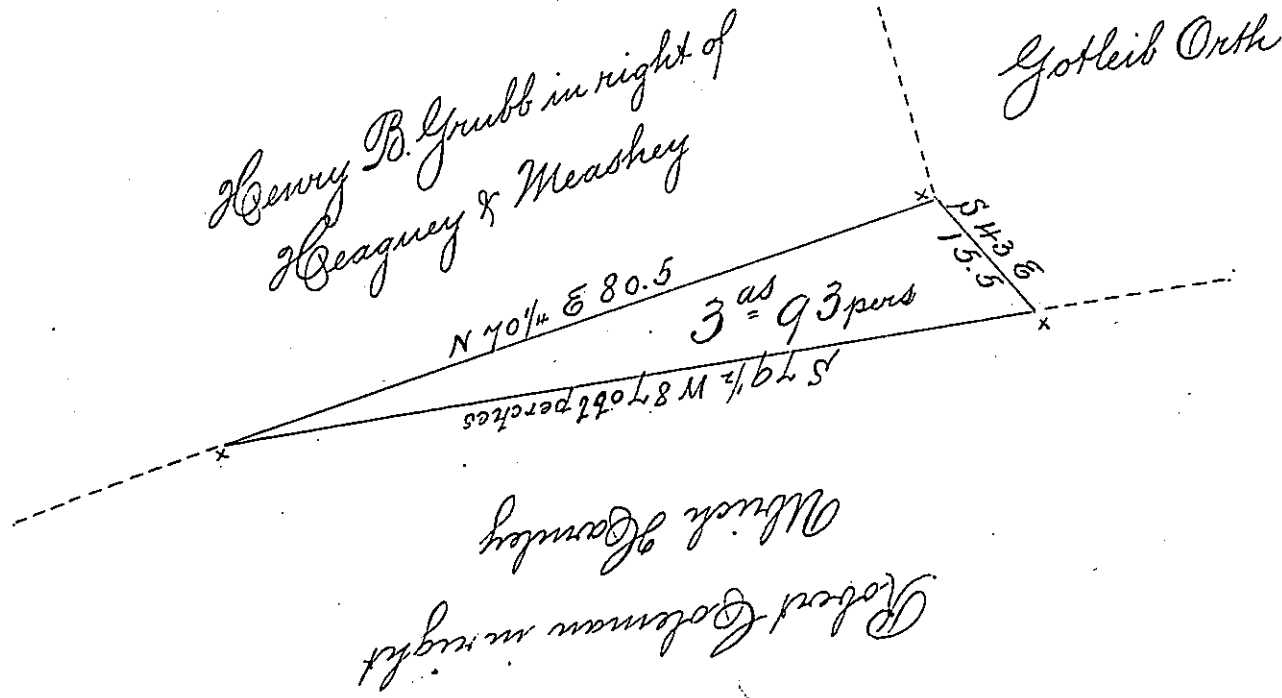 Henry B. Grubb in right of
Heagney & Meashey
Gotleib Orth
N 70 1/4 E 80.5
S 43 E
15.5
3 as = 93 pers
S 79 1/2 W 87 obl perches
Robert Coleman in right
Ulrich Harnley